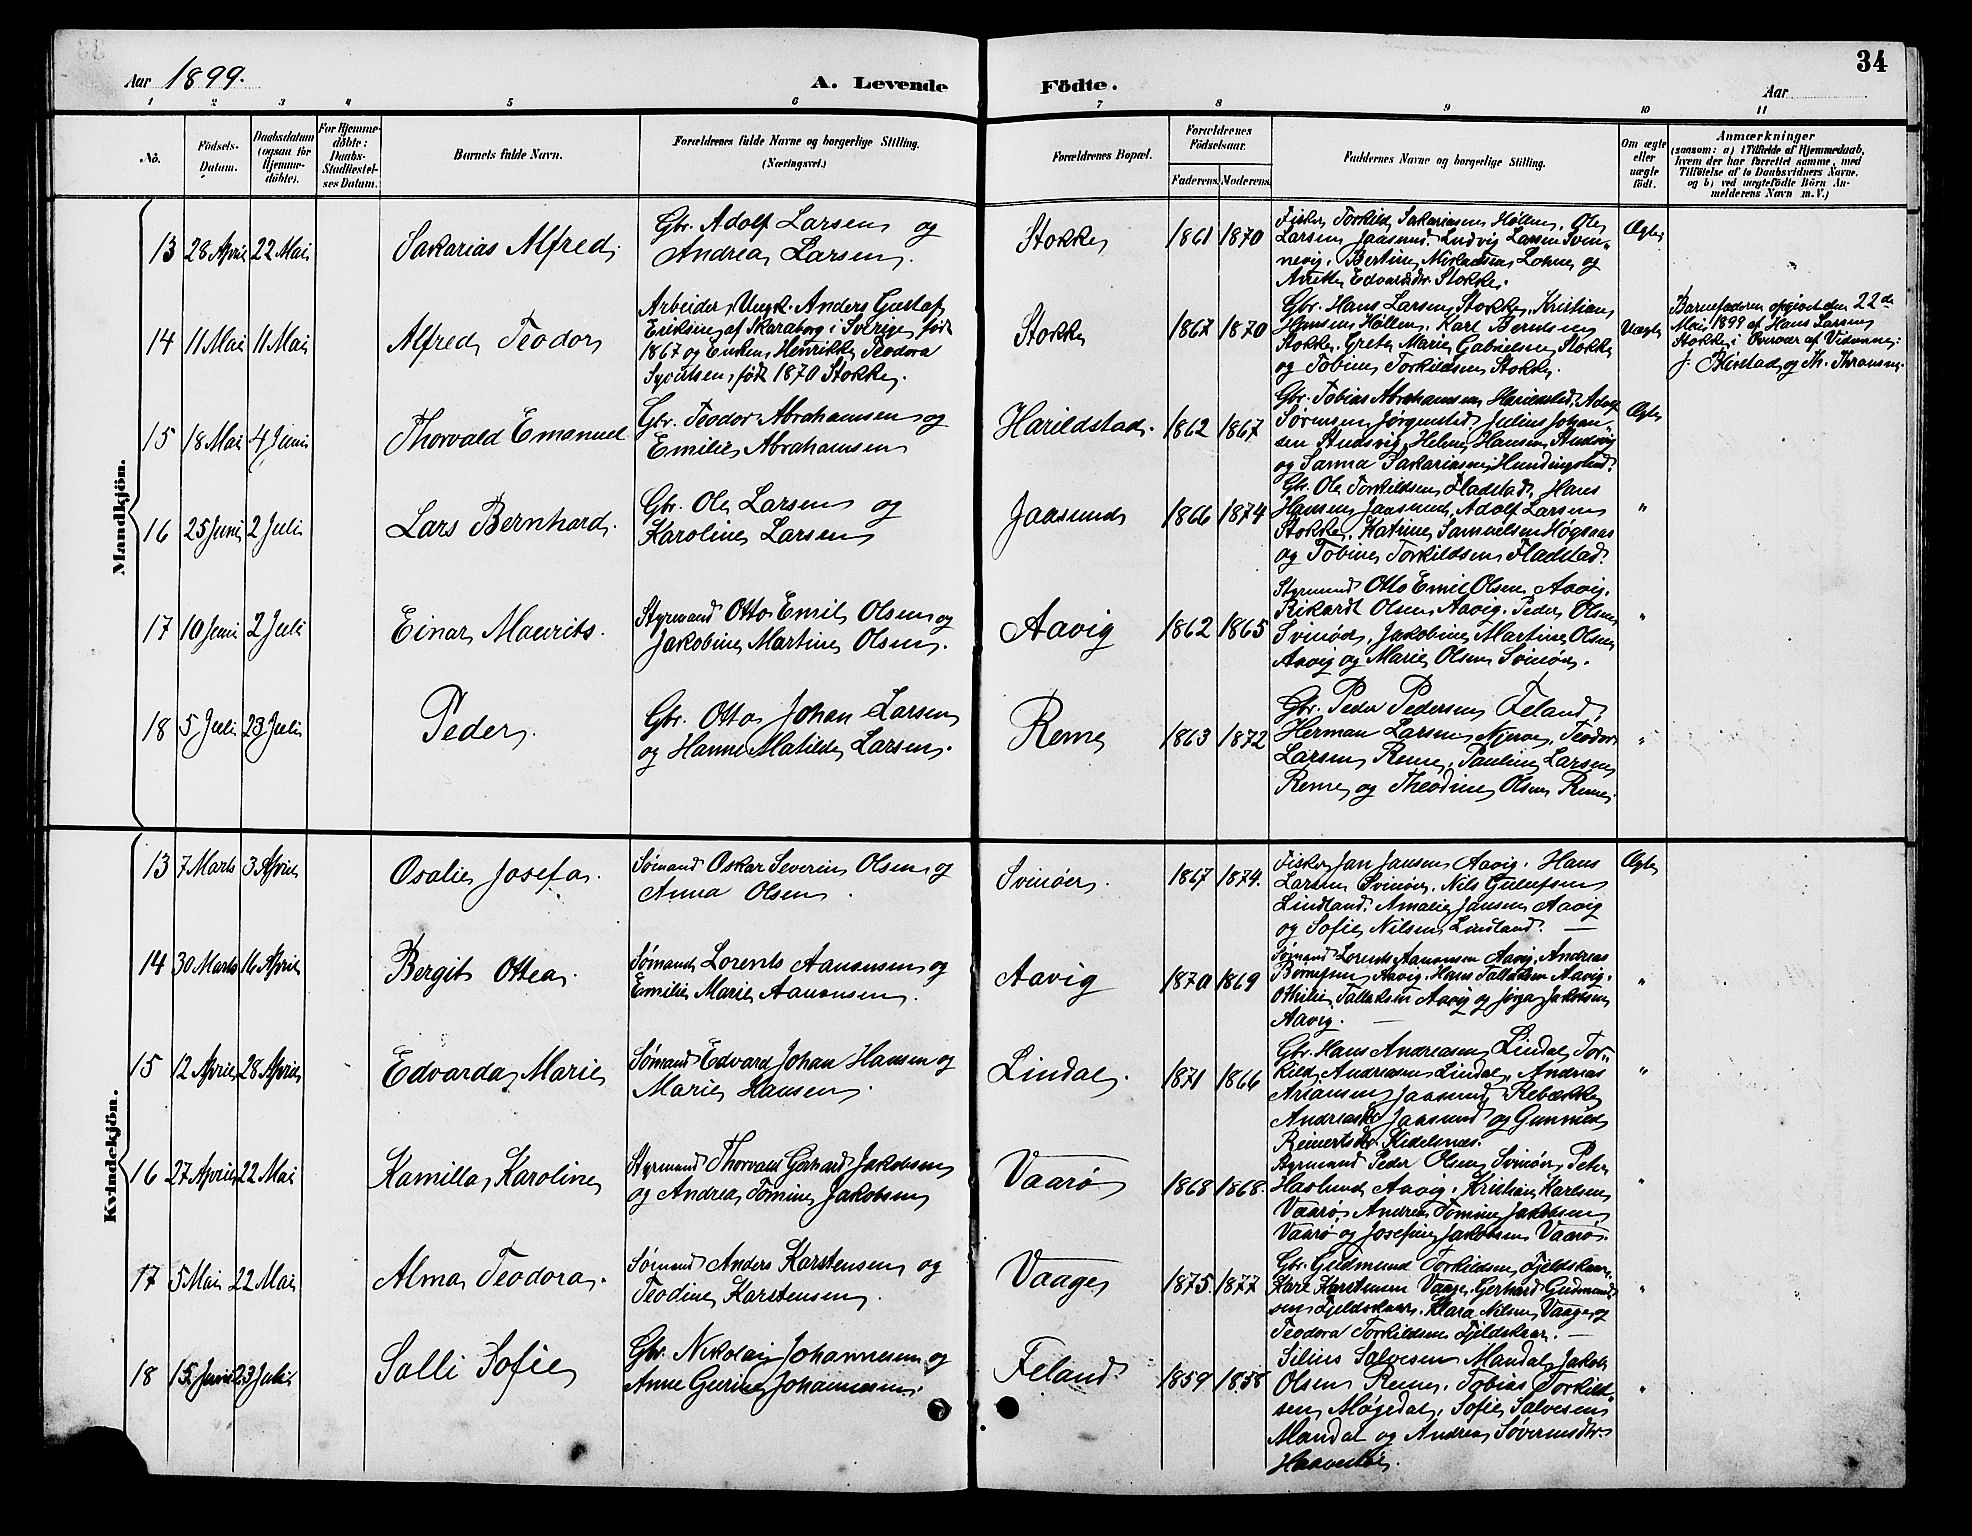 34
Aar 1899.
A. Levende Födte.
Aar
1 2 3 4 5 6 7 8 9 10 11
No.
Födsels-Datum.
Daabsdatum (ogsaa for Hjemmedöbte).
For Hjemmedöbte: Daabs-Stadfæstelses Datum.
Barnets fulde Navn.
Forældrenes fulde Navne og borgerlige Stilling.
(Næringsvei.)
Forældrenes Bopæl.
Forældrenes Födselsaar.
Faderens. Moderens.
Faddernes Navne og borgerlige Stilling.
Om ægte eller uægte födt.
Anmærkninger
(saasom: a) i Tilfælde af Hjemmedaab,
hvem der har forrettet samme, med
Tilföielse af to Daabsvidners Navne,
og b) ved uægtefödte Börn Anmelderens Navn m.V.)
Mandkjön.
13 28 April 22 Mai
Sakarias Alfred.
Gbr. Adolf Larsen og
Andrea Larsen.
Stokke
1861 1870
Fisker Torkild Sakariassen Høllen, Ole
Larsen Jaasund. Ludvig Larsen Svin-
nevig, Bertine Mikalsen Lohne og
Anette Edvardsdr. Stokke.
Ægte
14 11 Mai 11 Mai
Alfred Teodor
Arbeider, Ungk. Anders Gustaf
Eriksen af Skaraborg i Sverige, født
1867 og Enken Henrikke Teodora
Syvertsen, født 1870 Stokke.
Stokke
1867 1870
Gbr. Hans Larsen Stokke, Kristian
Hansen Høllen, Karl Berntsen
Stokke. Grete Marie Gabrielsen Stokke
og Tobine Torkildsen Stokke.
Uægte
Barnefaderen opgivet den 22de
Mai 1899 af Hans Larsen
Stokke i Overvær af Vidnerne:
15 18 Mai 4 Juni
Thorvald Emanuel
Gbr. Teodor Abrahamsen og
Emilie Abrahamsen
Harildstad.
1862 1867
Gbr. Tobias Abrahamsen Harildstad, Adolf
Sørensen Jørgenstad, Julius Johan-
sen Studsvig, Helene Hansen Studsvig
og Sanna Sakariassen
Ægte
16 25 Juni 2 Juli
Lars Bernhard.
Gbr. Ole Larsen og
Karoline Larsen
Jaasund
1866 1874
Gbr. Ole Torkildsen Fladstad, Hans
Hansen Jaasund, Adolf Larsen
Stokke, Katrine Samuelsen Høgsaas
og Tobine Torkildsen Fladstad.
"
17 10 Juni 2 Juli
Einar Maurits.
Styrmand Otto Emil Olsen og
Jakobine Martine Olsen.
Aavig
1862 1865
Styrmand Otto Emil Olsen Aavig.
Rikardt Olsen Aavig. Peder Olsen
Svinøer, Jakobine Martine Olsen
Aavig og Marie Olsen Svinør.
"
18 5 Juli 23 Juli
Peder.
Gbr. Otto Johan Larsen
og Hanne Matilde Larsen.
Reme
1863 1872
Gbr. Peder Pedersen Feland,
Herman Larsen Njerve, Teodor
Larsen Reme, Pauline Larsen
Reme og Theodine Olsen Reme.
"
Kvindekjön.
13 7 Marts 3 April
Osalie Josefa.
Sømand Oskar Severin Olsen og
Anna Olsen.
Svinøer.
1867 1874.
Fisker Jan Jansen Aavig. Hans
Larsen Svinøer. Nils Gulufsen
Lindland. Amalie Jansen Aavig
og Sofie Nilsen Lindland.
Ægte
14 30 Marts 16 April
Bergit Ottea.
Sømand Lorents Aanonsen og
Emilie Marie Aanonsen.
Aavig
1870 1869
Sømand Lorents Aanonsen Aavig, Andreas
Aavig. Hans Tallaksen Aavig.
Othilie Tallaksen Aavig og Jakobsen
Aavig.
"
15 12 April 28 April
Edvarda Marie
Sømand Edvard Johan Hansen og
Marie Hansen.
Lindal.
1871 1866
Gbr. Hans Andreassen Lindal, Tor-
kild Andreassen Lindal, Andreas
Ariansen Jaasund, Rebække
Andreasdr Jaasund og Gunnild
Reinertsdr
"
16 27 April 22 Mai
Kamilla Karoline
Styrmand Thorvald Gerhard Jakobsen
og Andrea Tomine Jakobsen
Vaarø
1868 1868.
Styrmand Peder Olsen Svinør, Peter
Haslund Aavig, Kristian Karlsen
Vaarø, Andrea Tomine Jakobsen
Vaarø og Josefine Jakobsen Vaarø.
"
17 5 Mai 22 Mai
Alma Teodora.
Sømand Anders Karstensen og
Teodine Karstensen.
Vaage
1875 1877
Gbr. Gudmund Torkildsen Fjeldskaar,
Karl Karstensen Vaage. Gerhard Gudmund-
sen Fjeldskaar. Klara Nilsen Vaage og
Teodora Torkildsen Fjeldskaar.
"
18 15 Juni 23 Juli
Salli Sofie
Gbr. Nikolai Johannesen og
Anne Gurine Johannesen.
Feland
1859 1858
Silius Salvesen Mandal, Jakob
Olsen Reme. Tobias Torkild-
sen Møgedal, Sofie Salvesen
Mandal og Andrea